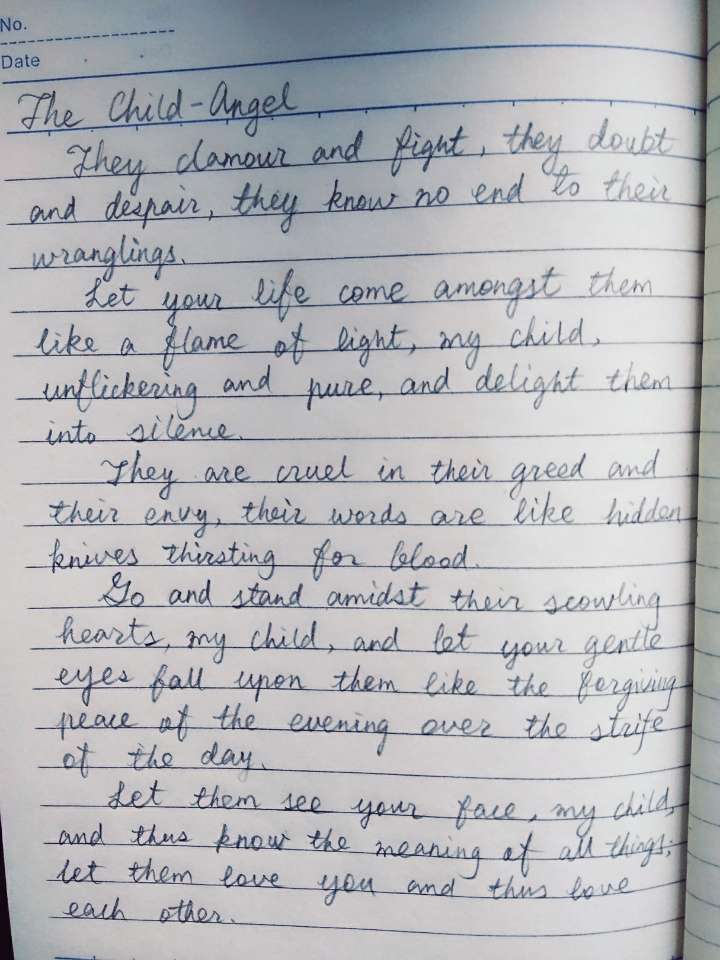 No.
Date
The Child-Angel
They clamour and fight, they doubt
and despair, they know no end to their
wranglings.
Let your life come amongst them
like a flame of light, my child,
unflickering and pure, and delight them
into silence.
They are cruel in their greed and
their envy, their words are like hidden
knives thirsting for blood.
Go and stand amidst their scowling
hearts, my child, and let your gentle
eyes fall upon them like the forgiving
peace of the evening over the strife
of the day.
Let them see your face, my child,
and thus know the meaning of all things;
let them love you and thus love
each other.